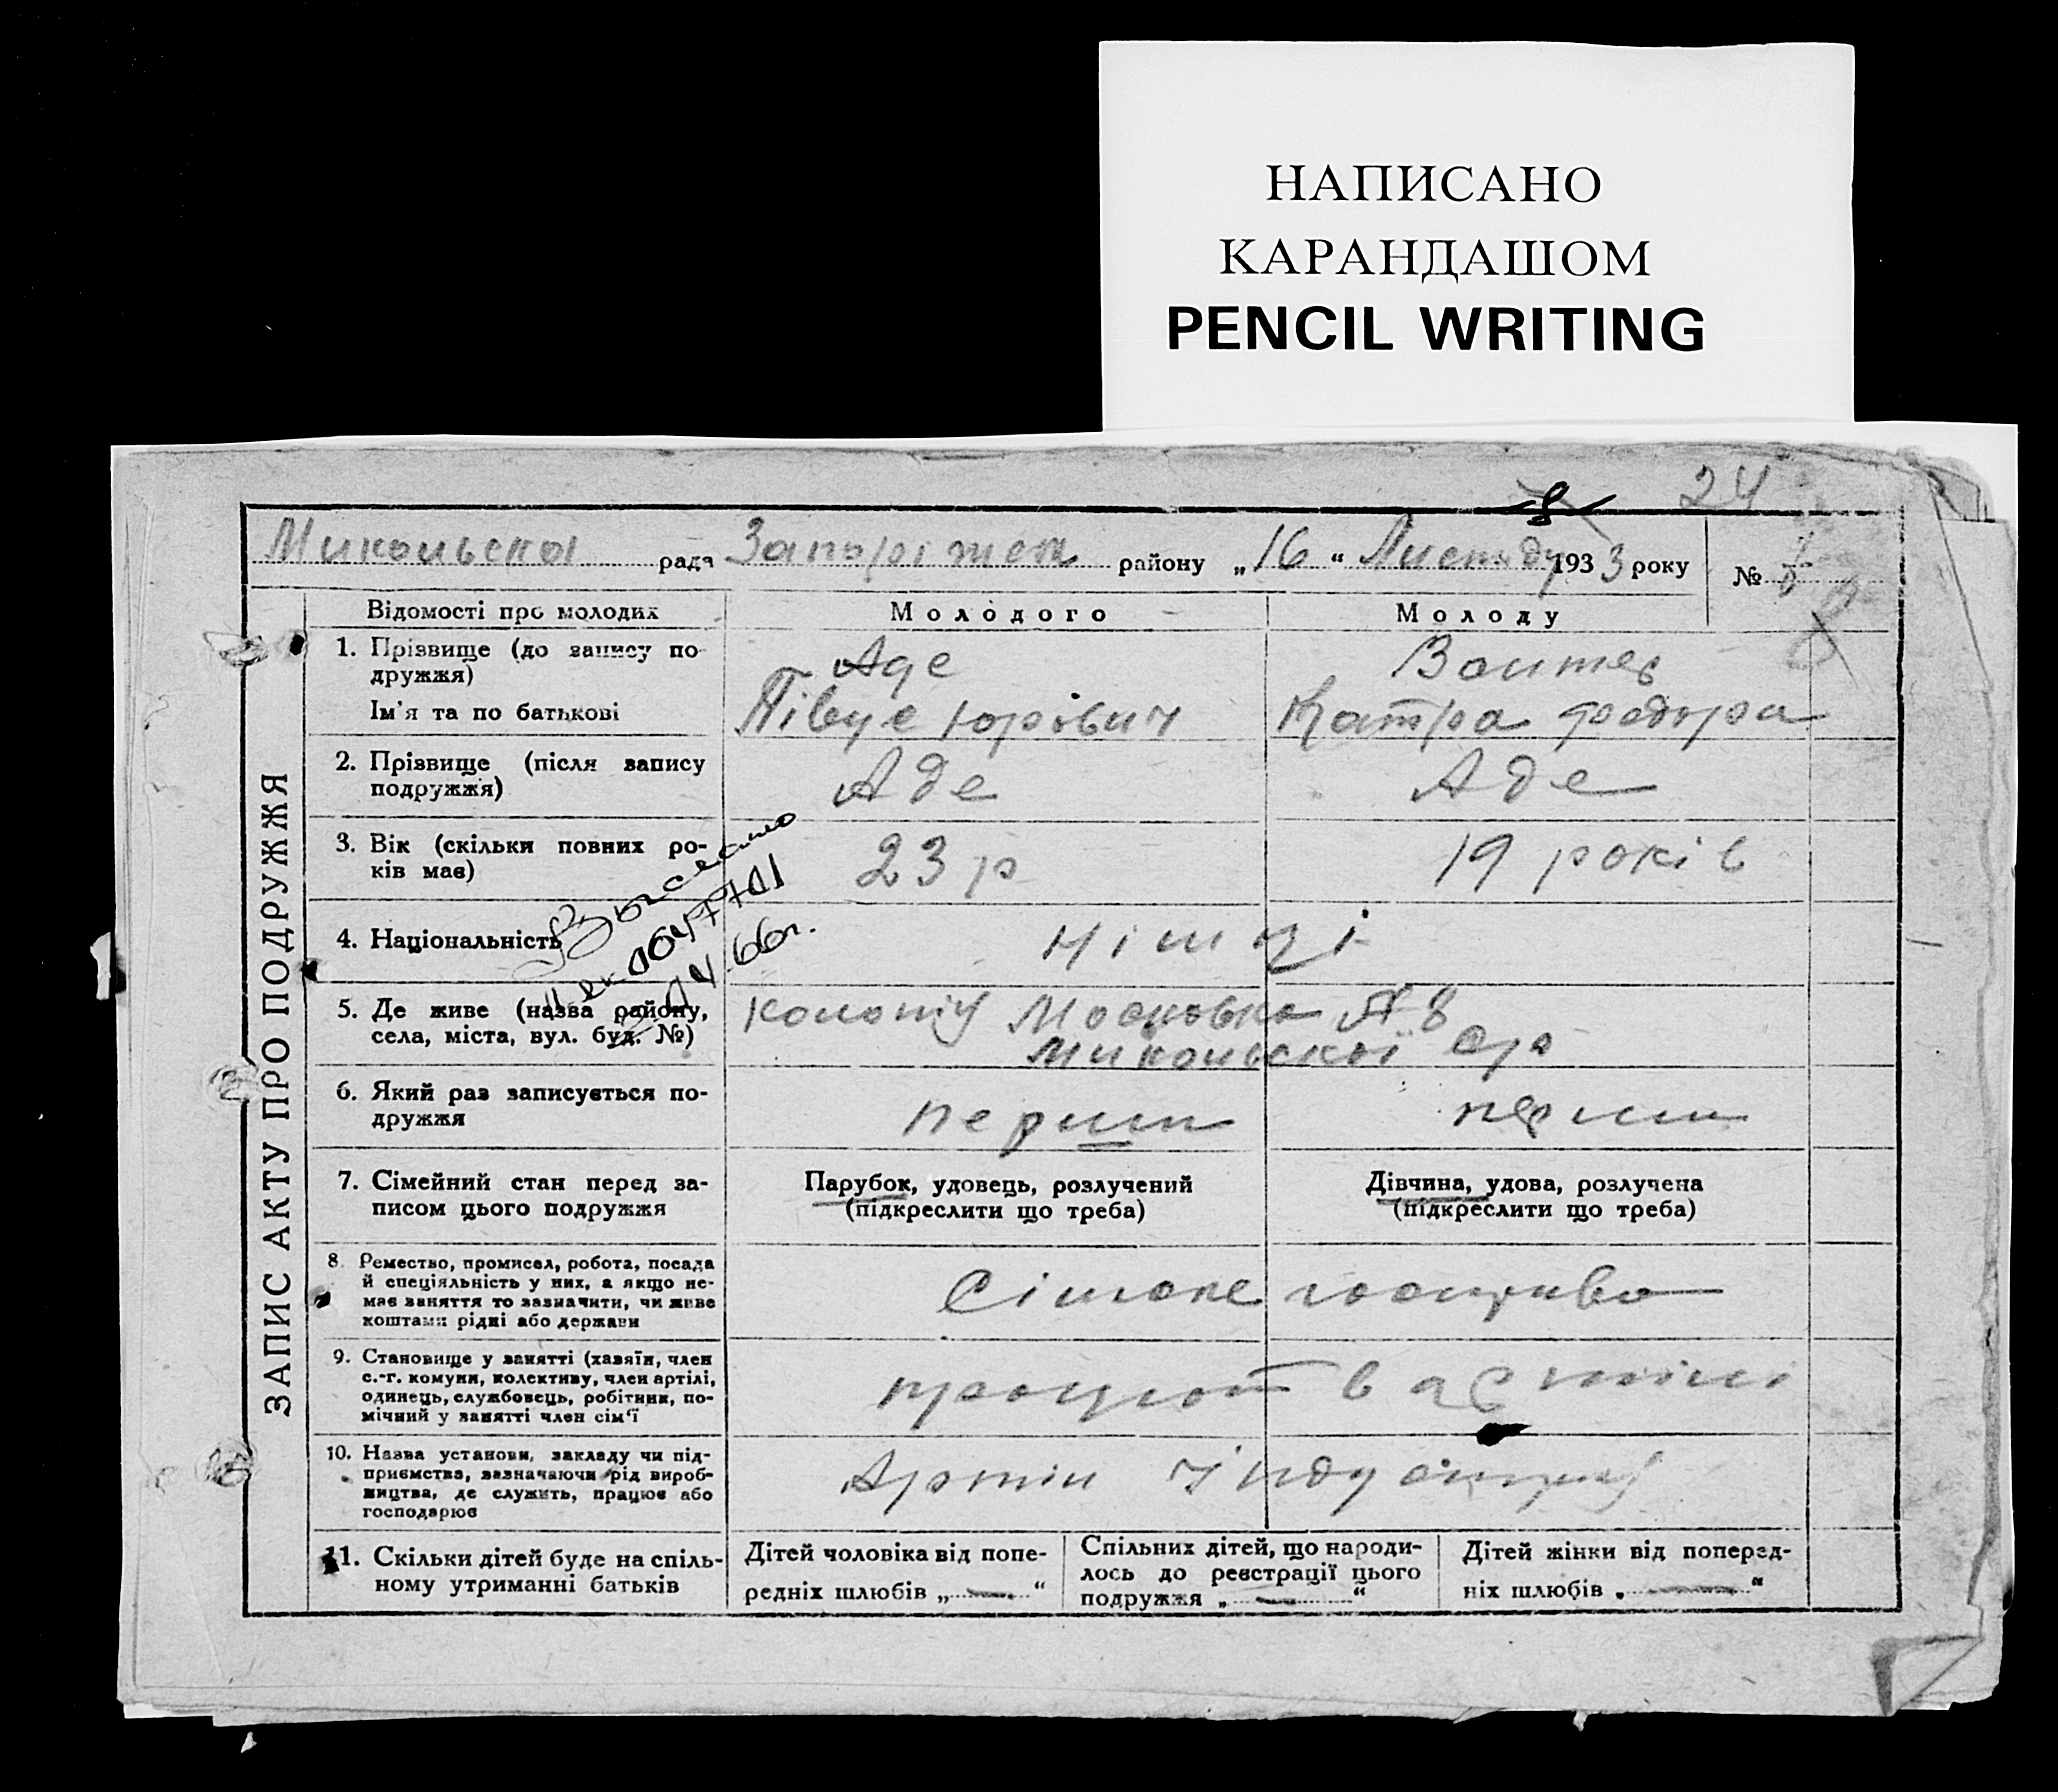 НАПИСАНО
КАРАНДАШОМ
PENCIL WRITING
24
8
Микольська рада Запоріжск району „16“ Листпаду 1933 року №
ЗАПИС АКТУ ПРО ПОДРУЖЖЯ
Відомості про молодих Молодого Молоду
1. Прізвище (до запису по-
дружжя)
Аде
Ім'я та по батькові
Юрівич Катра Федора
2. Прізвище (після запису
подружжя)
Аде Аде
3. Вік (скільки повних ро-
ків має)
23 р 19 років
4. Національність
німці
5. Де живе (назва району,
села, міста, вул. буд. №)
колонія Московка № 8
Микольської с/р
6. Який раз записується по-
дружжя
перший перший
7. Сімейний стан перед за-
писом цього подружжя
Парубок, удовець, розлучений
(підкреслити що треба)
Дівчина, удова, розлучена
(підкреслити що треба)
8. Ремество, промисел, робота, посада
й спеціяльність у них, а якщо не-
має заняття то зазначити, чи живе
коштами рідні або держави
9. Становище у занятті (хазяїн, член
с.-г. комуни, колективу, член артілі,
одинець, службовець, робітник, по-
мічний у занятті член сім'ї
працюют в артілі
10. Назва установи, закладу чи під-
приємства, зазначаючи рід вироб-
ництва, де служить, працює або
господарює
Артіль
11. Скільки дітей буде на спіль-
ному утриманні батьків
Дітей чоловіка від попе-
редніх шлюбів „ — “
Спільних дітей, що народи-
лось до реєстрації цього
подружжя „ — “
Дітей жінки від поперед-
ніх шлюбів „ — “